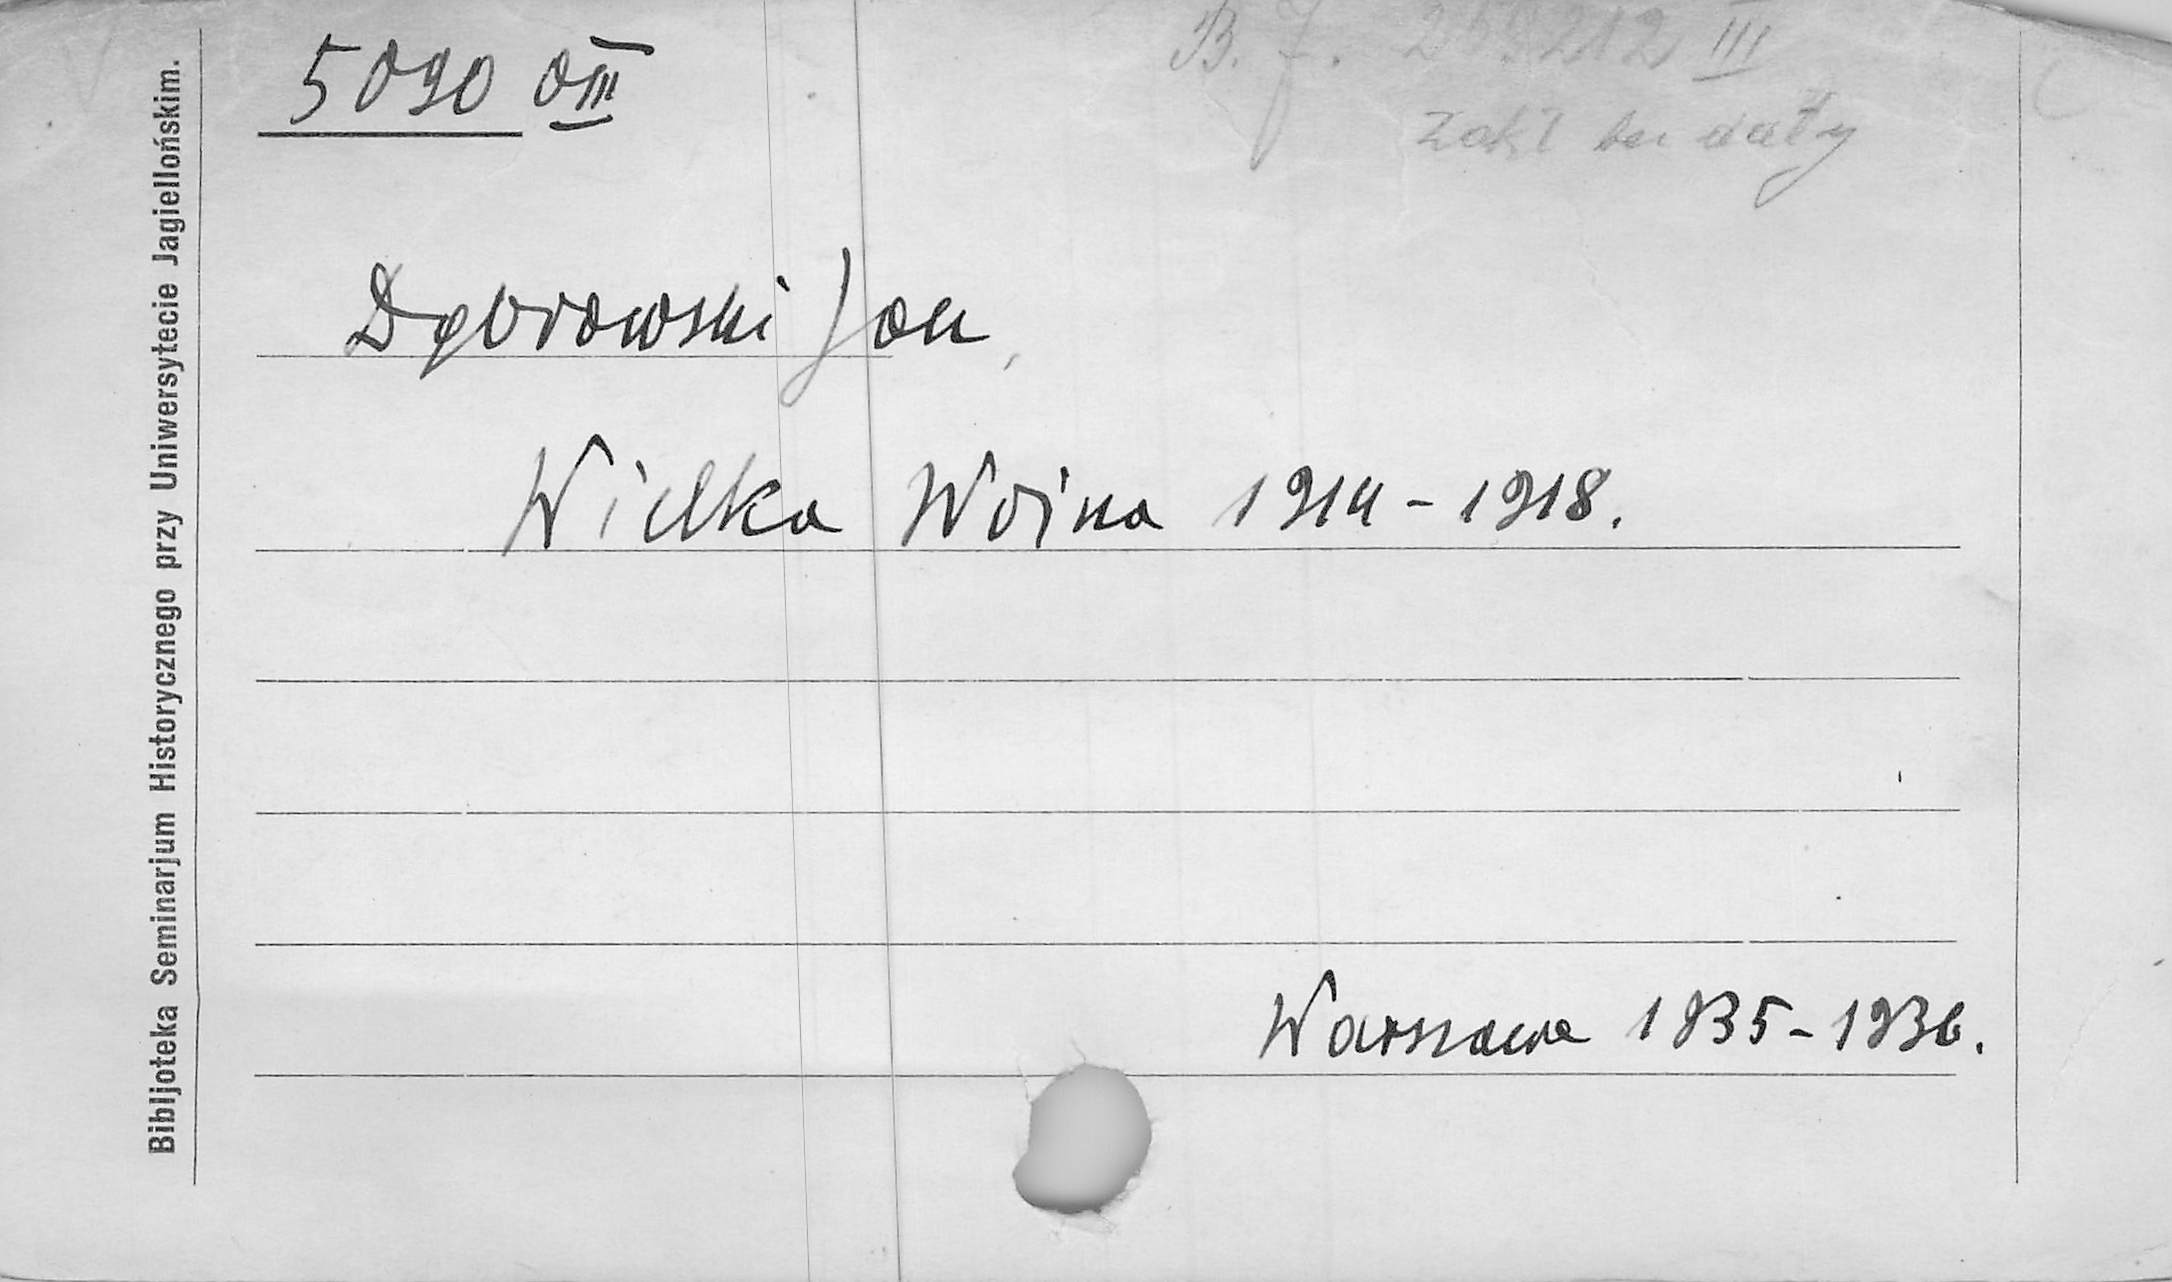 5090 III
B. J. 212 III
Zakł daty
Dąbrowski Jan
Wielka Wojna 1914-1918.
Warszawa 1935-1936.
Bibljoteka Seminarjum Historycznego przy Uniwersytecie Jagiellońskim.